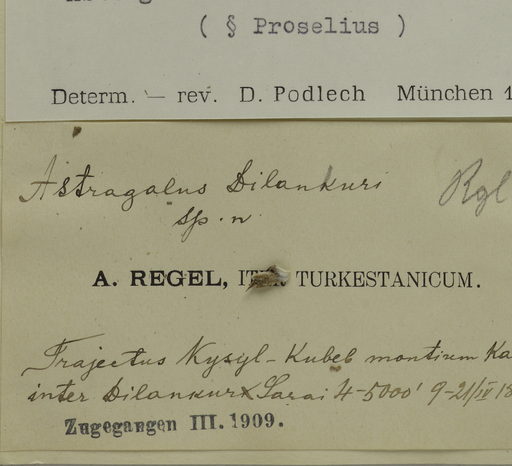 ( § Proselius )
Determ. — rev. D. Podlech München 1
Astragalus Dilankuri Rgl
sp. n
A. REGEL, ITER TURKESTANICUM.
Trajectus Kysyl-Kubeb montium Ka
inter Dilankur x Sarai 4-5000' 9-21/IV 18
Zugegangen III. 1909.